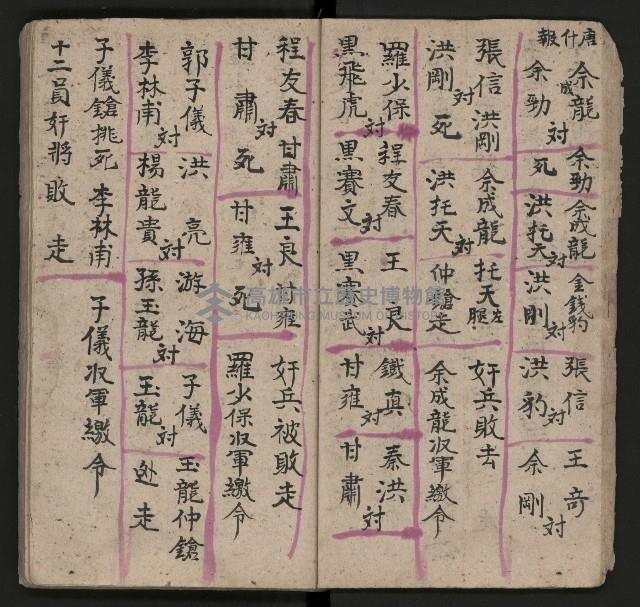 唐什報
余成龍 対 余勁
余勁 死
余成龍 対 洪托天
金錢豹 対 洪剛
張信 対 洪豹
王奇 対 余剛
張信 対 洪剛
洪剛 死
余成龍 対 洪托天
托天左腿仲鎗走
奸兵敗去
余成龍収軍繳令
羅少保 対 黑飛虎
程友春 対 黑賽文
王良 対 黑賽武
鐵真 対 甘雍
秦洪 対 甘肅
程友春 対 甘肅
甘肅 死
王良 対 甘雍
甘雍 死
奸兵被敗走
羅少保収軍繳令
郭子儀 対 李林甫
洪亮 対 楊龍貴
游海 対 孫玉龍
子儀 対 玉龍
玉龍仲鎗
処走
子儀鎗挑死李林甫
子儀収軍繳令
十二員奸將敗走
高雄市立歷史博物館
KAOHSIUNG MUSEUM OF HISTORY